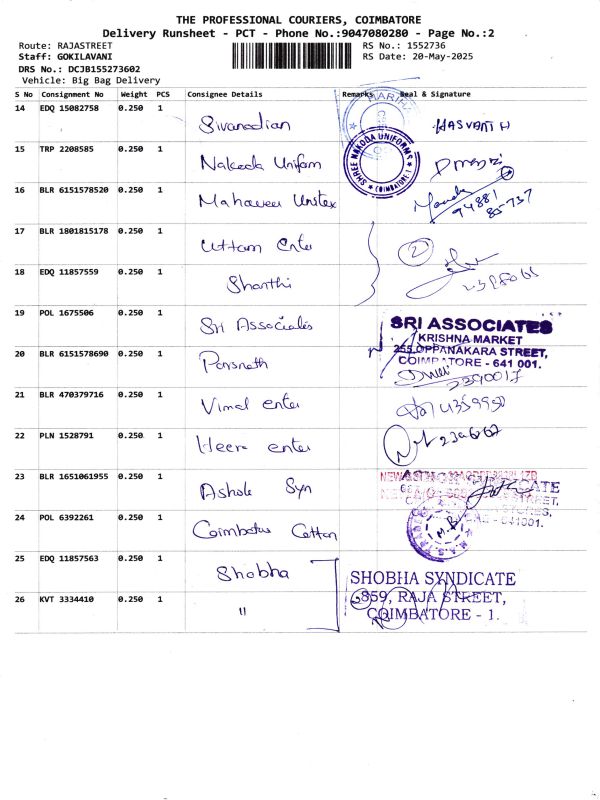 THE PROFESSIONAL COURIERS, COIMBATORE
Delivery Runsheet - PCT - Phone No.:9047080280 - Page No.:2
Route: RAJASTREET
RS No.: 1552736
Staff: GOKILAVANI
RS Date: 20-May-2025
DRS No.: DCJB155273602
Vehicle: Big Bag Delivery
S No Consignment No Weight PCS Consignee Details Remarks Seal & Signature
14 EDQ 15082758 0.250 1 Sivanadian HASVANTH
15 TRP 2208585 0.250 1 Nakoda Uniform
SHREE NAKODA UNIFORMS COIMBATORE-1
16 BLR 6151578520 0.250 1 Mahaveer Unitex
94881
85-737
17 BLR 1801815178 0.250 1 Uttam Enter 2
18 EDQ 11857559 0.250 1 Shanthi
19 POL 1675506 0.250 1 Sri Associates
SRI ASSOCIATES
KRISHNA MARKET
255, OPPANAKARA STREET,
COIMBATORE - 641 001.
20 BLR 6151578690 0.250 1 Parsnath
2390017
21 BLR 470379716 0.250 1 Vimal enter 4359950
22 PLN 1528791 0.250 1 Heera enter
23 BLR 1651061955 0.250 1 Ashok Syn
24 POL 6392261 0.250 1 Coimbatore Cotton
25 EDQ 11857563 0.250 1 Shobha
26 KVT 3334410 0.250 1 "
SHOBHA SYNDICATE
859, RAJA STREET,
COIMBATORE - 1.